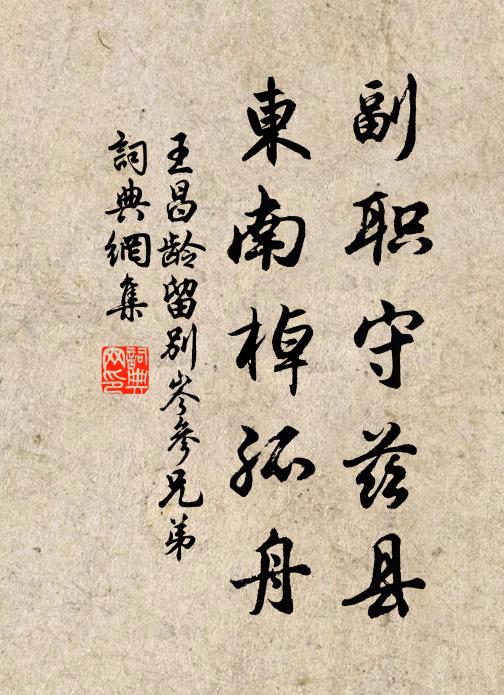 副职守兹县
東南棹孤舟
王昌龄留别岑參兄弟
詞典網集
詞典
网印